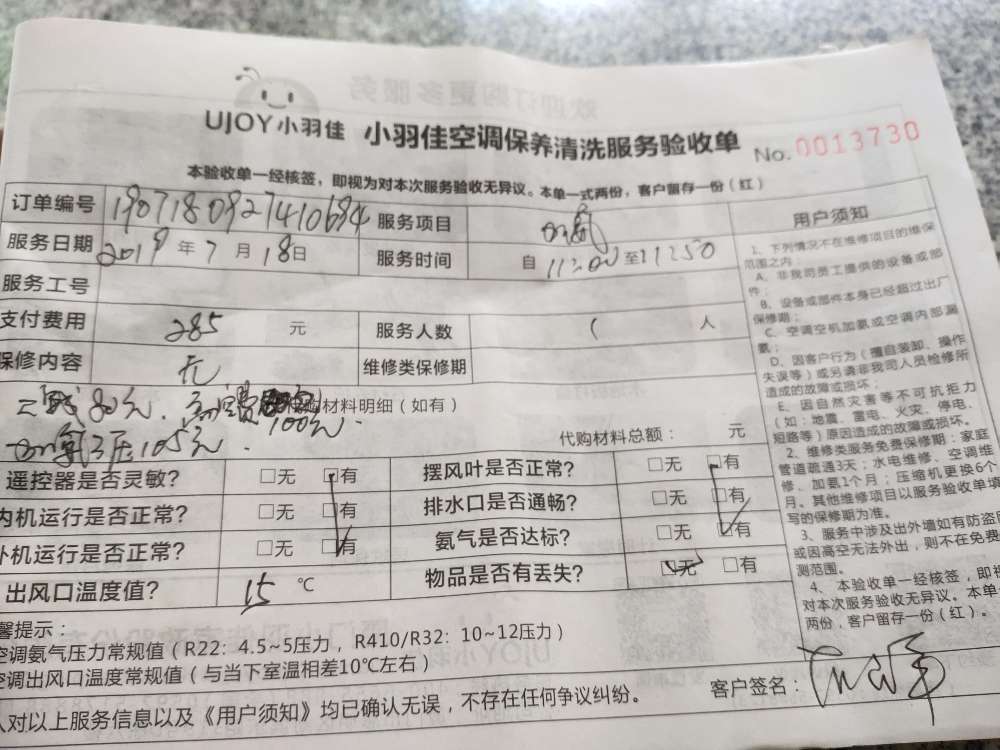 UJOY小羽佳 小羽佳空调保养清洗服务验收单 No. 0013730
本验收单一经核签，即视为对本次服务验收无异议。本单一式两份，客户留存一份（红）
订单编号 1907180927410684 服务项目
服务日期 2019 年 7 月 18 日 服务时间 自 11:00 至 11:50
服务工号
支付费用 285 元 服务人数 1 人
保修内容 无 维修类保修期
80元 100元 购材料明细（如有）
105元 代购材料总额： 元
遥控器是否灵敏？ □无 □有 摆风叶是否正常？ □无 □有
内机运行是否正常？ □无 □有 排水口是否通畅？ □无 □有
外机运行是否正常？ □无 □有 氨气是否达标？ □无 □有
出风口温度值？ 15 ℃ 物品是否有丢失？ □无 □有
馨提示：
空调氨气压力常规值（R22：4.5~5压力， R410/R32：10~12压力）
空调出风口温度常规值（与当下室温相差10℃左右）
人对以上服务信息以及《用户须知》均已确认无误，不存在任何争议纠纷。
客户签名：
用户须知
1、下列情况不在维修项目的维保
范围之内：
A、非我司员工提供的设备或部
件；
B、设备或部件本身已经超过出厂
保修期；
C、空调空机加氨或空调内部漏
氨；
D、因客户行为（擅自装卸、操作
失误等）或另请非我司人员检修所
造成的故障或损坏；
E、因自然灾害等不可抗拒力
（如：地震、雷电、火灾、停电、
短路等）原因造成的故障或损坏。
2、维修类服务免费保修期：家庭
管道疏通3天；水电维修、空调维
修、加氨1个月；压缩机更换6个
月。其他维修项目以服务验收单填
写的保修期为准。
3、服务中涉及出外墙如有防盗网
或因高空无法外出，则不在免费
测范围。
4、本验收单一经核签，即视
对本次服务验收无异议。本单
两份，客户留存一份（红）。